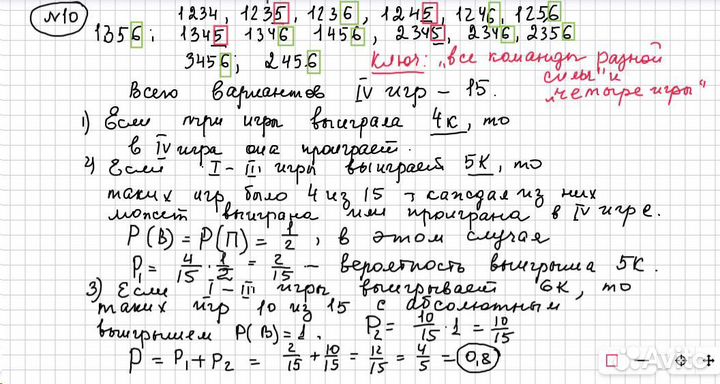 №10
1234, 1235, 1236, 1245, 1246, 1256
1356; 1345 1346 1456, 2345, 2346, 2356
3456; 2456 Ключ: „все команды разной
силы" и
„четыре игры"
Всего вариантов IV игр – 15.
1) Если три игры выиграла 4к, то
в IV игра она проиграет.
4) Если I – III игры выиграет 5К, то
таких игр было 4 из 15 каждая из них
может выиграна или проиграна в IV игре.
P(B) = P(П) = 1/2, в этом случая
P₁ = 4/15 · 1/2 = 2/15 – вероятность выигрыша 5К.
3) Если I – III игры выигрывает 6К, то
таких игр 10 из 15 с абсолютным
выигрышем P(B) = 1. P₂ = 10/15 · 1 = 10/15
P = P₁ + P₂ = 2/15 + 10/15 = 12/15 = 4/5 = 0,8
Avito